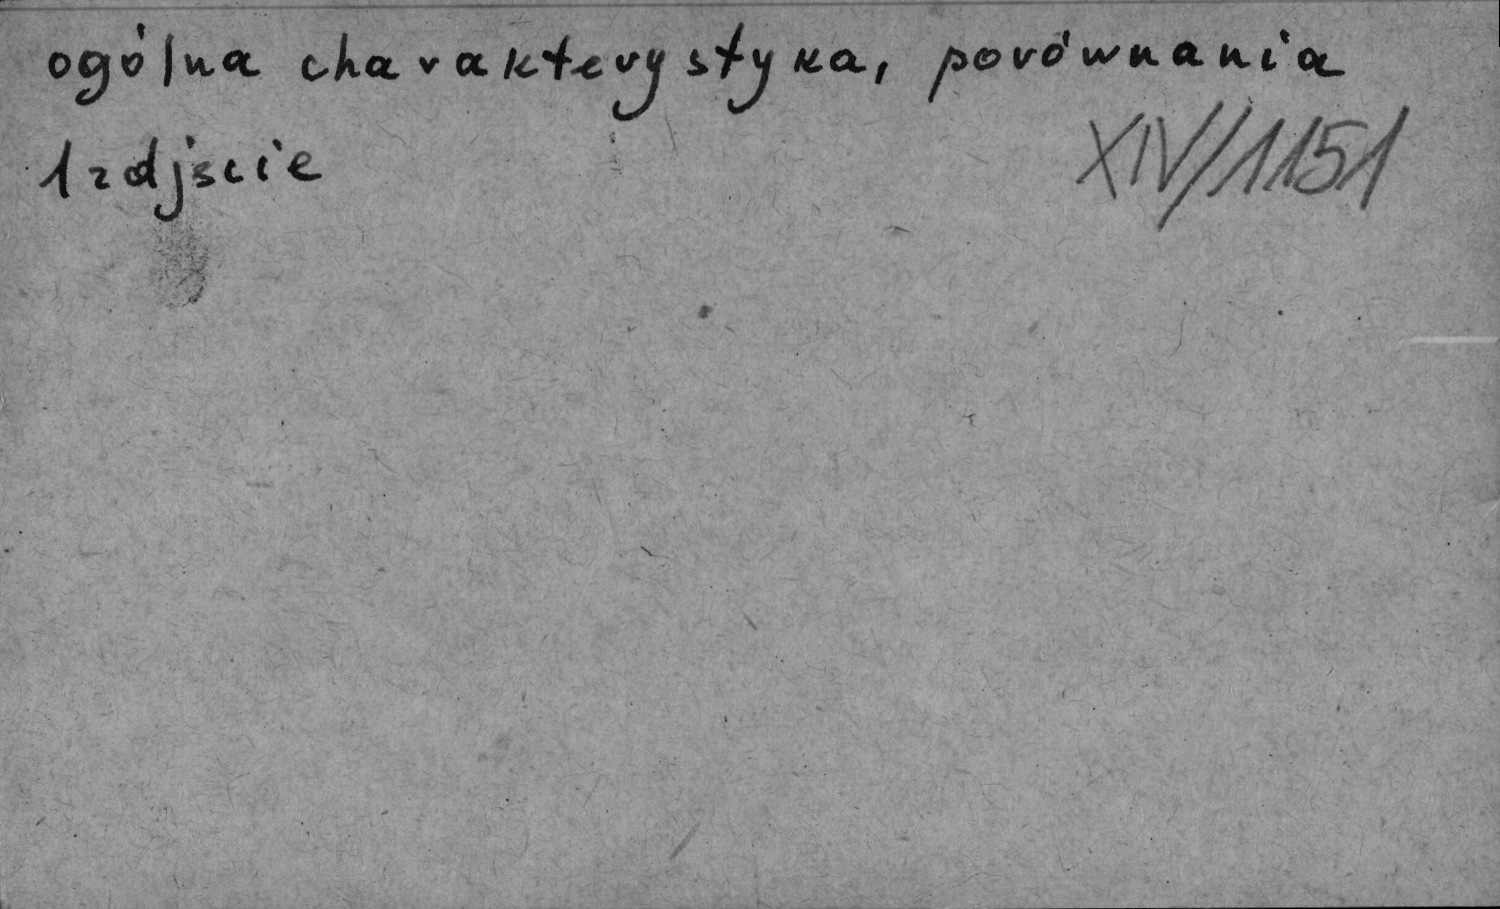 ogólna charakterystyka, porównania
1 zdjście
XIV/1151